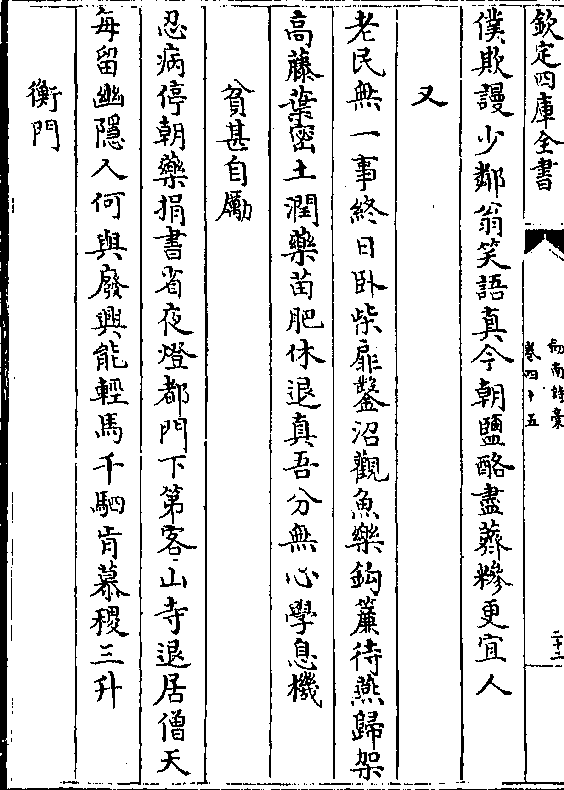 欽定四庫全書
劒南詩稾
卷四十五
二十二
僕欺謾少鄰翁笑語真今朝鹽酪盡蔬糝更宜人
又
老民無一事終日卧柴扉鑿沼觀魚樂鈎簾待燕歸架
高藤葉密土潤藥苗肥休退真吾分無心學息機
貧甚自勵
忍病停朝藥捐書省夜燈都門下第客山寺退居僧天
每留幽隱人何與廢興能輕馬千駟肯慕稷三升
衡門